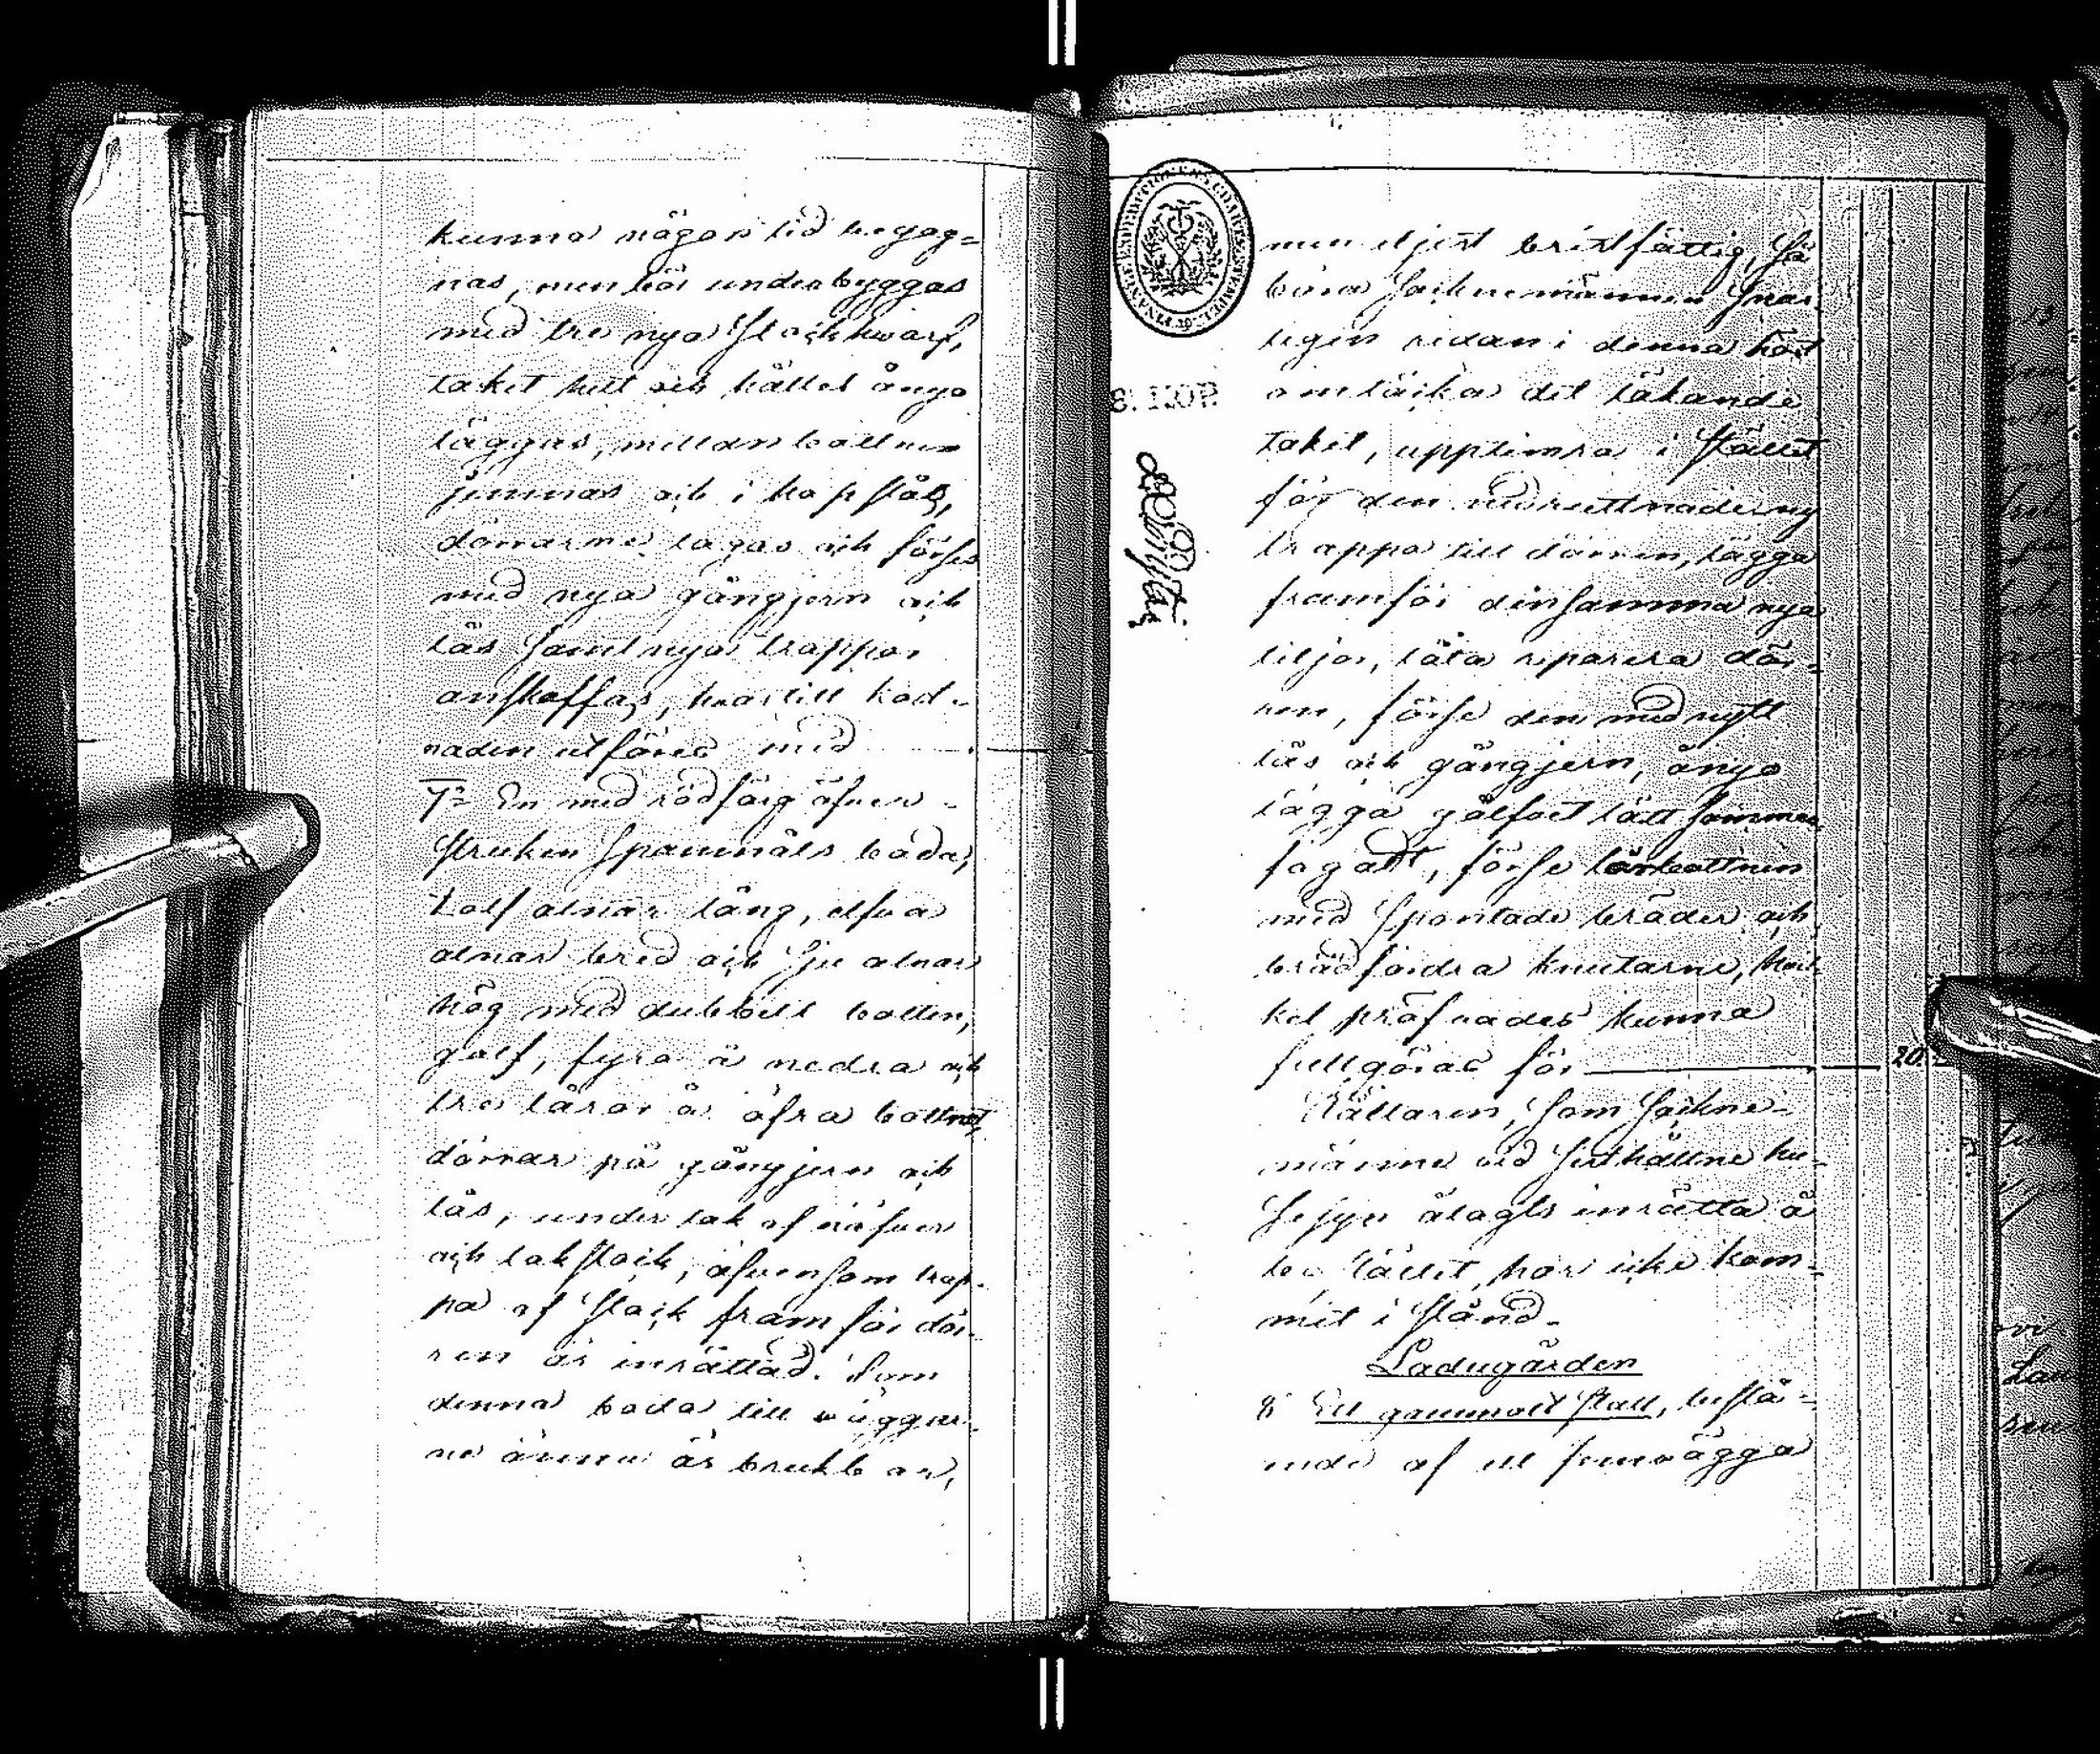 kunna någon tid begag=
nas, men bör underbyggas
med tre nya Stockhwarf,
taket helt och hållet ånyo
läggas, mellanbottnen
jemnas och i hop slås,
dörrarne lagas och förses
med nya gångjern och
lås samt nya trappor
anskaffas, hvartill kost-
naden utföres med
7= En med rödfärg öfver-
struken Spannmåls boda,
tolf alnar lång, elfva
alnar bred och sju alnar
hög med dubbelt botten,
golf, fyra å nedra och
tre lårar å öfra bottnet,
dörrar på gångjern och
lås, under tak af näfver
och takstock, äfvensom trap-
pa af Stock framför dör-
ren är inrättad. Som
denna boda till väggar-
ne ännu är brukbar,
men eljest bristfällig, Så
böra Sockne männen Snar-
ligen redan i denna höst
omtäcka det läkande
taket, upptimra i Stället
för den nedruttnade ny
trappa till dörren, lägga
framför densamma nya
tiljor, låta reparera dör=
ren, förse den med nytt
lås och gångjern, ånyo
lägga golfvet tätt samman
fogadt, förse lårbottnen
med Spontade bräder och
brädfodra knutarne, hvil-
ket pröfvades kunna
fullgöras för 20.
Källaren, Som Sockne-
männe vid Sisthållne hu-
sesyn ålagts inrätta å
bo stället, har icke kom-
mit i Stånd.
Ladugården
8 Ett gammalt Stall, bestå=
ende af ett femvägga